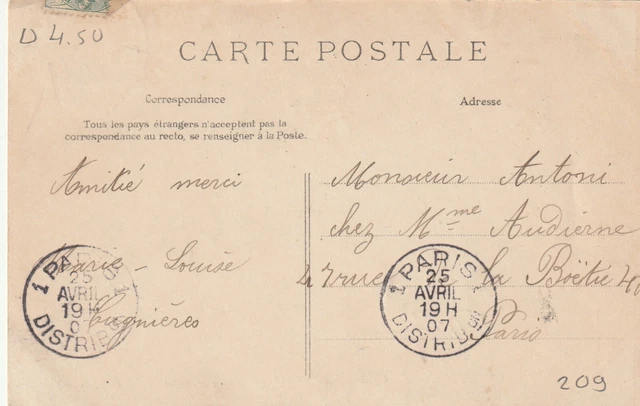 D 4.50
CARTE POSTALE
Correspondance
Adresse
Tous les pays étrangers n'acceptent pas la
correspondance au recto, se renseigner à la Poste.
Amitié merci
Marie-Louise
Cugnières
Monsieur Antoni
chez Mme Audierne
47 rue la Boëtie 47
Paris
1 PARIS 1
25
AVRIL
19 H
0
DISTRIB
1 PARIS 1
25
AVRIL
19 H
07
DISTRIBon
209